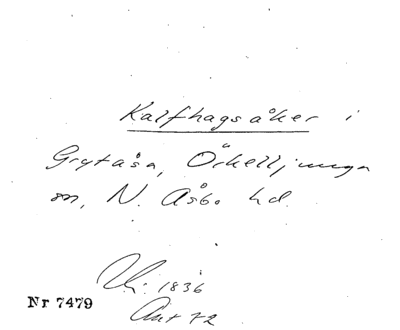 Kalfhagsåker i
Grytåsa, Örkelljunga
sn, N. Åsbo hd.
1836
Nr 7479
Akt 72